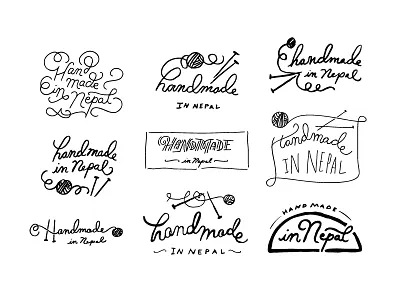 Hand
made
in Nepal
handmade
IN NEPAL
handmade
in Nepal
handmade
in Nepal
HANDMADE
in Nepal
handmade
IN NEPAL
Handmade
in Nepal
handmade
IN NEPAL
HANDMADE
in Nepal